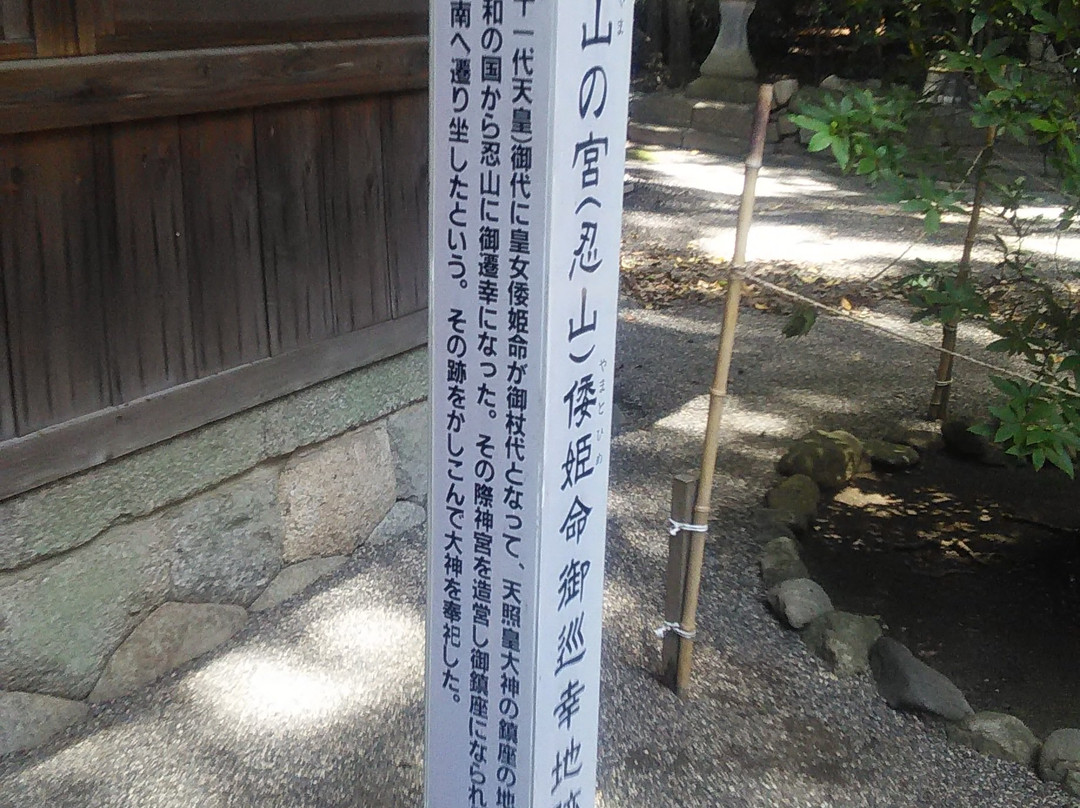 山の宮(忍山)倭姫命御巡幸地跡
やま
やまとひめ
十一代天皇)御代に皇女倭姫命が御杖代となって、天照皇大神の鎮座の地
和の国から忍山に御遷幸になった。その際神宮を造営し御鎮座になられ
南へ遷り坐したという。その跡をかしこんで大神を奉祀した。